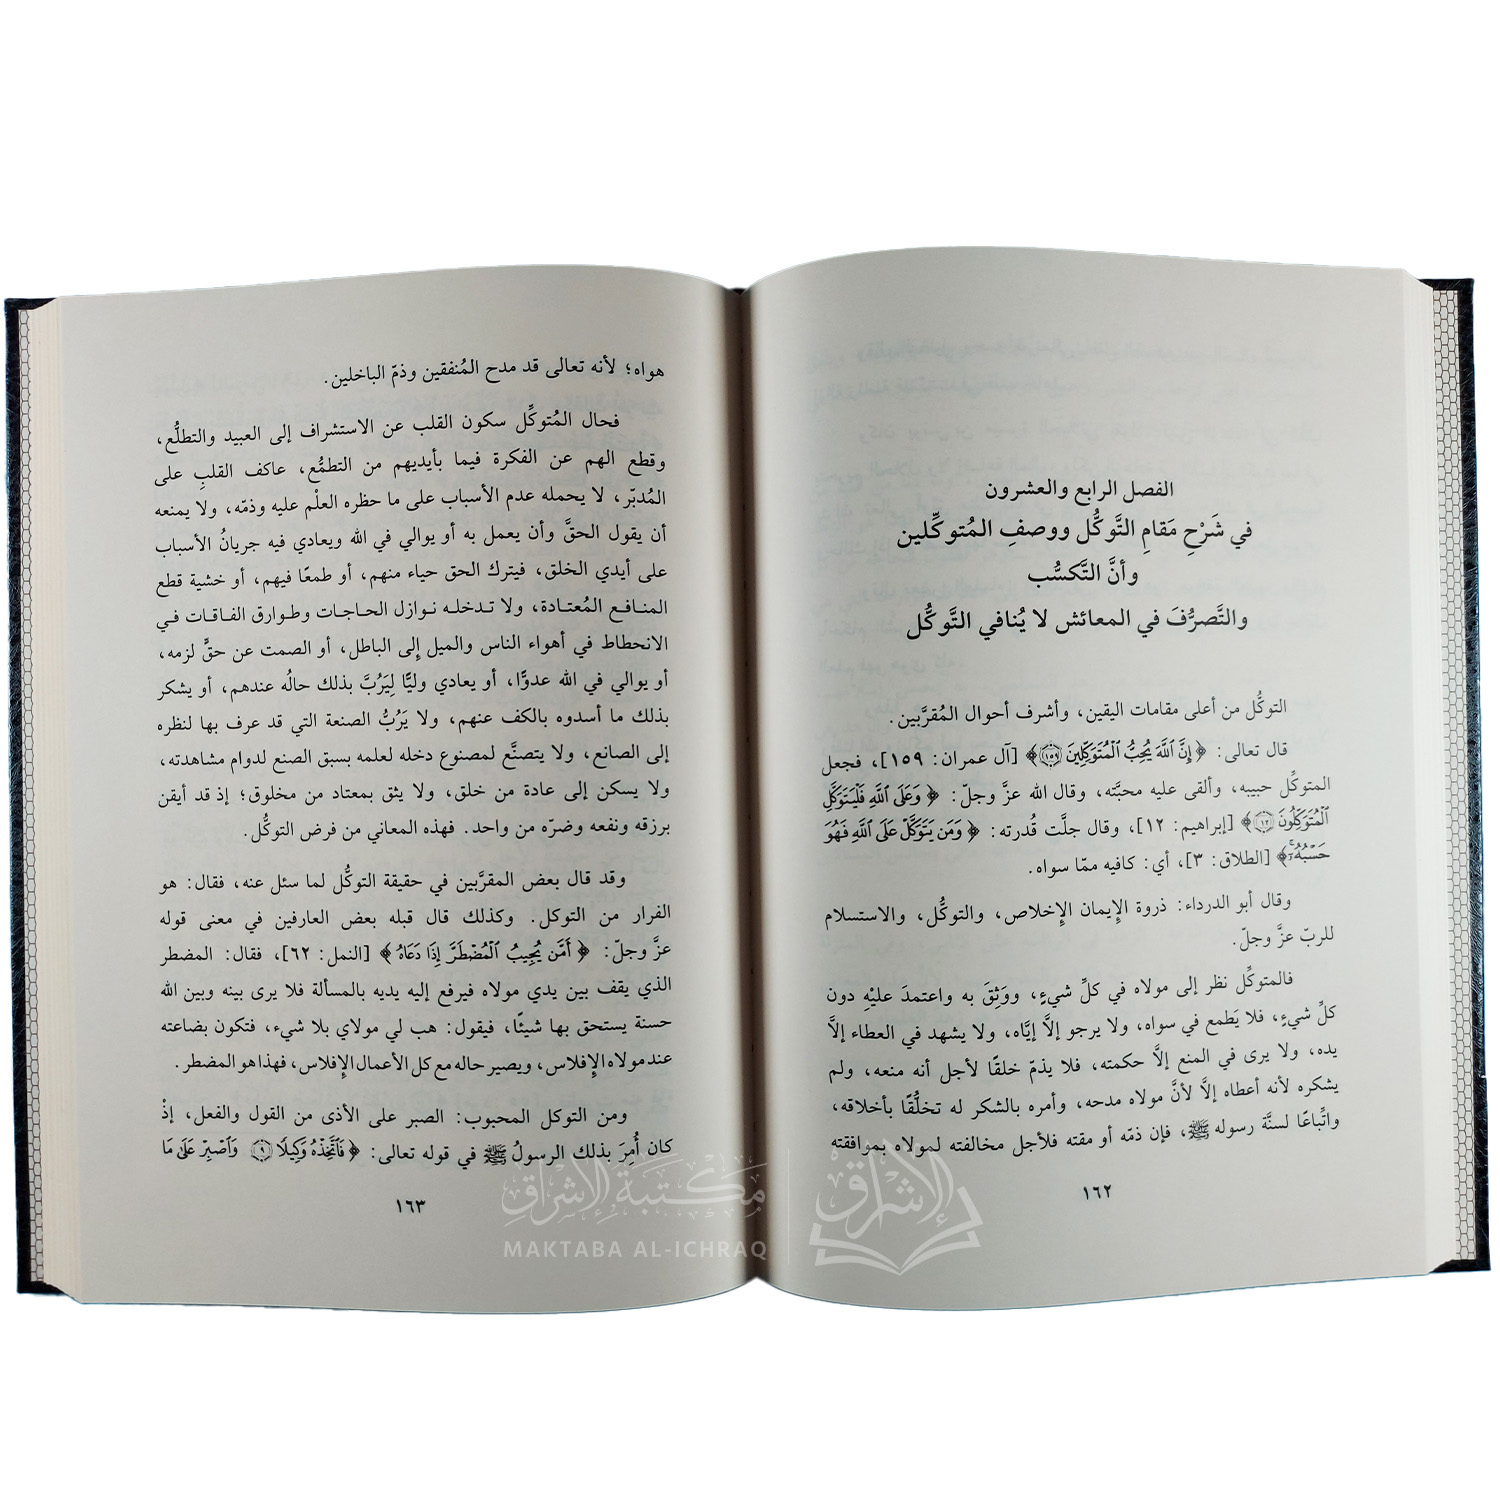 الفصل الرابع والعشرون
في شَرْحِ مَقامِ التَّوكُّل ووصفِ المُتوكِّلين
وأنَّ التَّكسُّب
والتَّصرُّفَ في المعائش لا يُنافي التَّوكُّل
التوكُّل من أعلى مقامات اليقين، وأشرف أحوال المُقرَّبين.
قال تعالى: ﴿إِنَّ ٱللَّهَ يُحِبُّ ٱلْمُتَوَكِّلِينَ ١٥٩﴾ [آل عمران: ١٥٩]، فجعل
المتوكِّل حبيبه، وألقى عليه محبَّته، وقال الله عزَّ وجلّ: ﴿وَعَلَى ٱللَّهِ فَلْيَتَوَكَّلِ
ٱلْمُتَوَكِّلُونَ ١٢﴾ [إبراهيم: ١٢]، وقال جلَّت قُدرته: ﴿وَمَن يَتَوَكَّلْ عَلَى ٱللَّهِ فَهُوَ
حَسْبُهُۥٓۚ﴾ [الطلاق: ٣]، أي: كافيه ممّا سواه.
وقال أبو الدرداء: ذروة الإيمان الإخلاص، والتوكُّل، والاستسلام
للربّ عزَّ وجلّ.
فالمتوكِّل نظر إلى مولاه في كلِّ شيءٍ، ووَثِقَ به واعتمدَ عليْهِ دون
كلِّ شيءٍ، فلا يَطمع في سواه، ولا يرجو إلَّا إيَّاه، ولا يشهد في العطاء إلَّا
يده، ولا يرى في المنع إلَّا حكمته، فلا يذمّ خلقًا لأجل أنه منعه، ولم
يشكره لأنه أعطاه إلَّا لأنَّ مولاه مدحه، وأمره بالشكر له تخلُّقًا بأخلاقه،
واتِّباعًا لسنَّة رسوله ﷺ، فإن ذمّه أو مقته فلأجل مخالفته لمولاه بموافقته
١٦٢
هواه؛ لأنه تعالى قد مدح المُنفقين وذمّ الباخلين.
فحال المُتوكِّل سكون القلب عن الاستشراف إلى العبيد والتطلُّع،
وقطع الهم عن الفكرة فيما بأيديهم من التطمُّع، عاكف القلبِ على
المُدبّر، لا يحمله عدم الأسباب على ما حظره العلْم عليه وذمّه، ولا يمنعه
أن يقول الحقَّ وأن يعمل به أو يوالي في الله ويعادي فيه جريانُ الأسباب
على أيدي الخلق، فيترك الحق حياء منهم، أو طمعًا فيهم، أو خشية قطع
المنافع المُعتادة، ولا تدخله نوازل الحاجات وطوارق الفاقات في
الانحطاط في أهواء الناس والميل إلى الباطل، أو الصمت عن حقٍّ لزمه،
أو يوالي في الله عدوًّا، أو يعادي وليًّا لِيَرُبَّ بذلك حالُه عندهم، أو يشكر
بذلك ما أسدوه بالكف عنهم، ولا يَرُبُّ الصنعة التي قد عرف بها لنظره
إلى الصانع، ولا يتصنَّع لمصنوع دخله لعلمه بسبق الصنع لدوام مشاهدته،
ولا يسكن إلى عادة من خلق، ولا يثق بمعتاد من مخلوق؛ إذ قد أيقن
برزقه ونفعه وضرّه من واحد. فهذه المعاني من فرض التوكُّل.
وقد قال بعض المقرَّبين في حقيقة التوكُّل لما سئل عنه، فقال: هو
الفرار من التوكل. وكذلك قال قبله بعض العارفين في معنى قوله
عزَّ وجلّ: ﴿أَمَّن يُجِيبُ ٱلْمُضْطَرَّ إِذَا دَعَاهُ﴾ [النمل: ٦٢]، فقال: المضطر
الذي يقف بين يدي مولاه فيرفع إليه يديه بالمسألة فلا يرى بينه وبين الله
حسنة يستحق بها شيئًا، فيقول: هب لي مولاي بلا شيء، فتكون بضاعته
عند مولاه الإفلاس، ويصير حاله مع كل الأعمال الإفلاس، فهذا هو المضطر.
ومن التوكل المحبوب: الصبر على الأذى من القول والفعل، إذْ
كان أُمِرَ بذلك الرسولُ ﷺ في قوله تعالى: ﴿فَٱتَّخِذْهُ وَكِيلًا ٩ وَٱصْبِرْ عَلَىٰ مَا
١٦٣
مكتبة الإشراق
MAKTABA AL-ICHRAQ
الإشراق